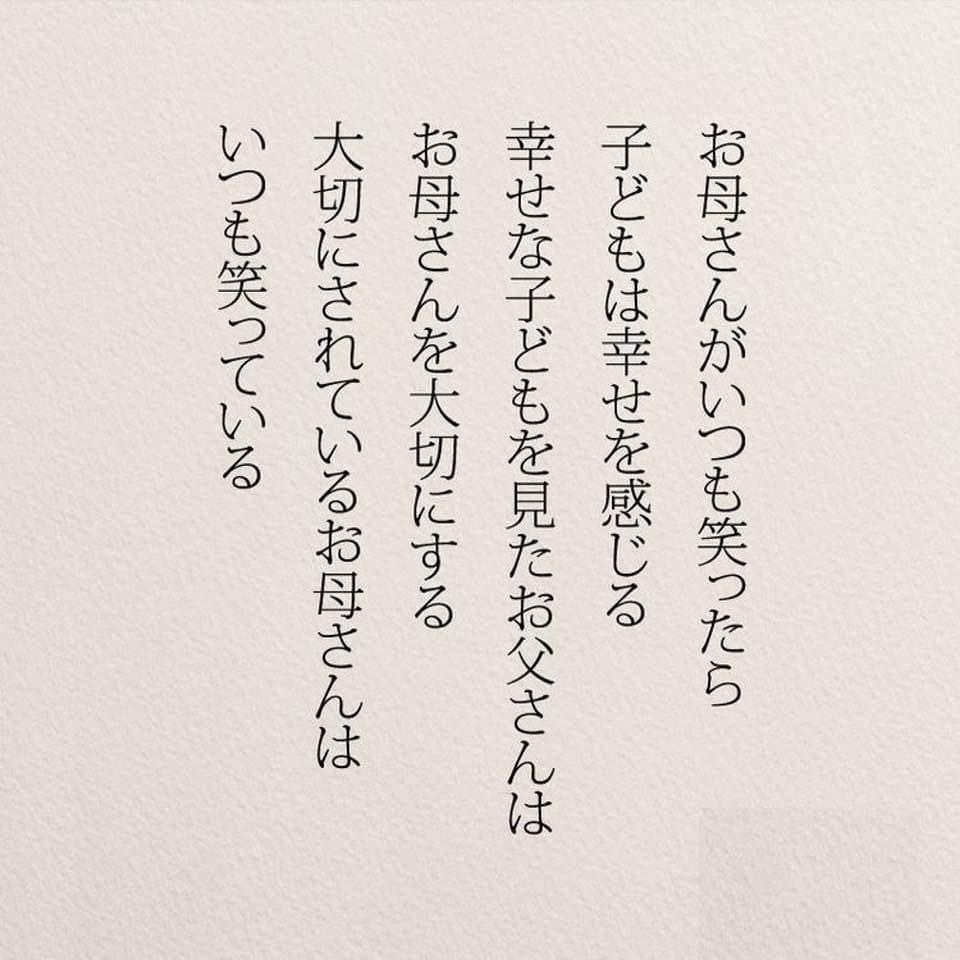 お母さんがいつも笑ったら
子どもは幸せを感じる
幸せな子どもを見たお父さんは
お母さんを大切にする
大切にされているお母さんは
いつも笑っている